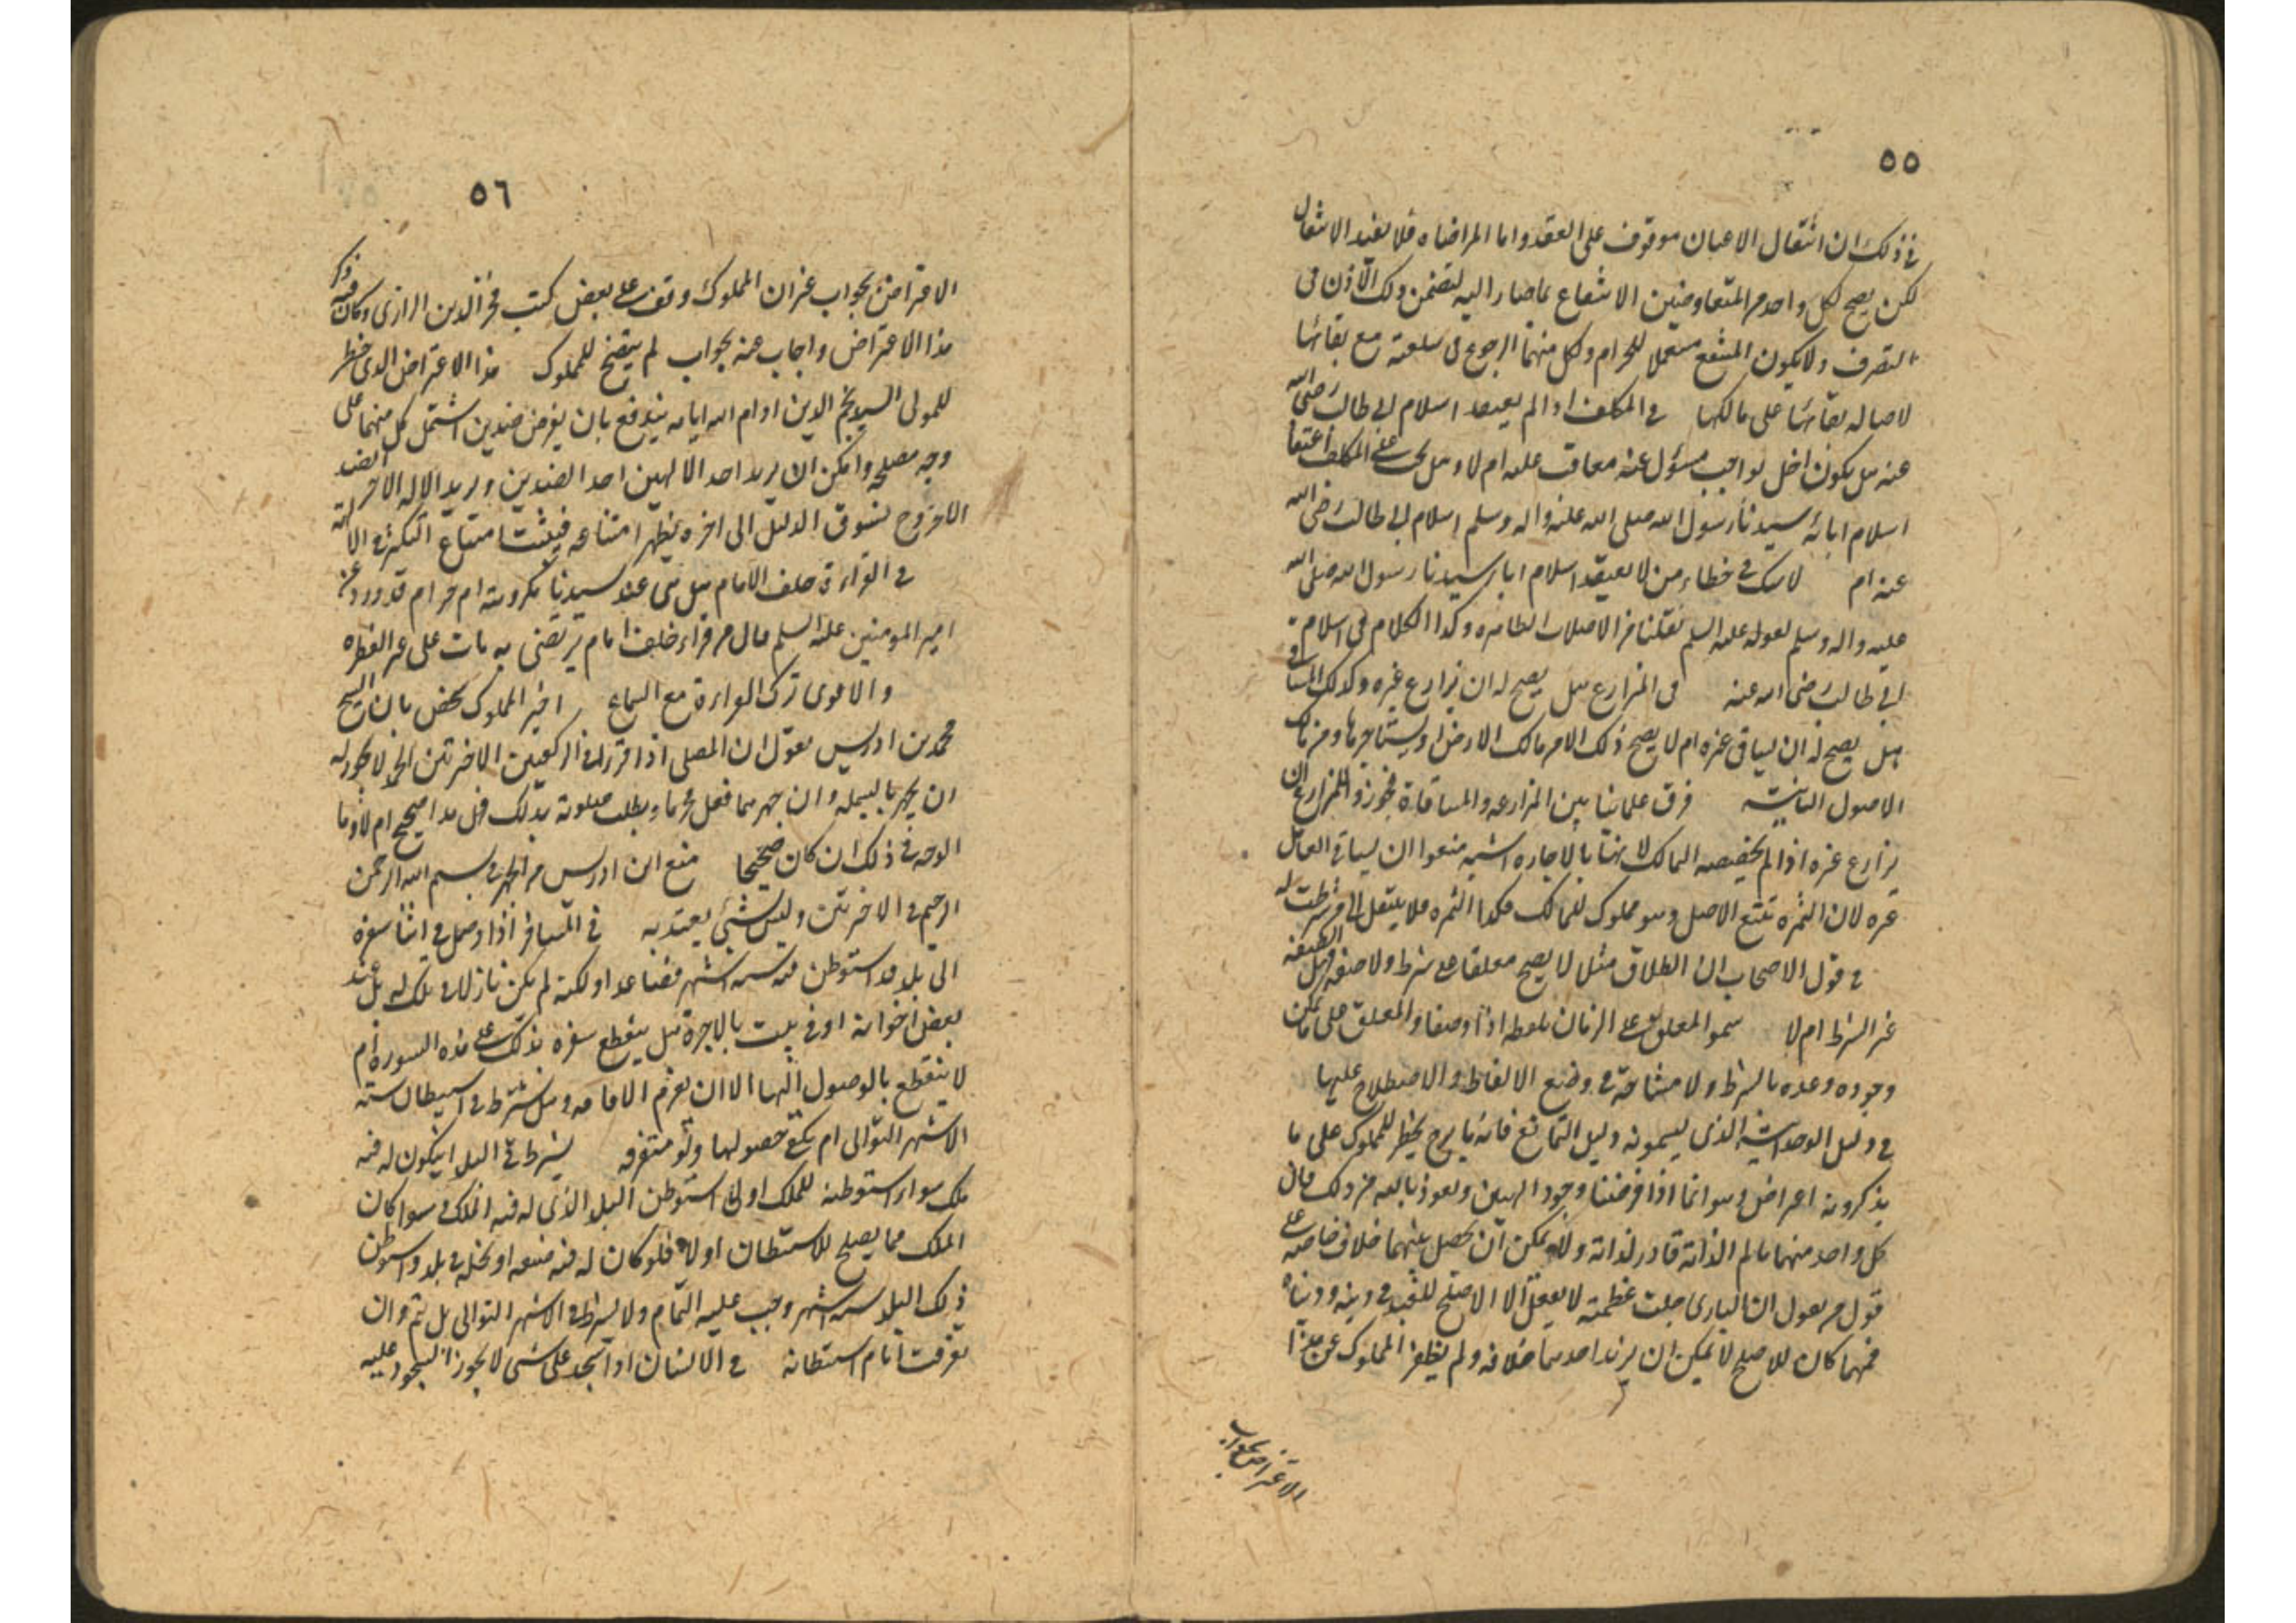 ٥٥
في ذلك ان انتقال الاعيان موقوف على العقد واما المراضاه فلا تفيد الانتقال
لكن يصح لكل واحد من المتعاوضين الانتفاع بما صار اليه لتضمن ذلك الاذن في
التصرف ولا يكون المنتفع مستعملا للحرام ولكل منهما الرجوع في سلعته مع بقائها
لاصالة بقائها على مالكها في المكلف اذا لم يعتقد اسلام ابي طالب رضي الله
عنه هل يكون اخل بواجب مسؤل عنه معاقب عليه ام لا وهل يجب على المكلف اعتقاد
اسلام ابائه سيدنا رسول الله صلى الله عليه واله وسلم اسلام ابي طالب رضي الله
عنه ام لا شك في خطاء من لا يعتقد اسلام ابا سيدنا رسول الله صلى الله
عليه واله وسلم لقوله عليه السلم نقلنا من الاصلاب الطاهره وكذا الكلام في اسلام
ابي طالب رضي الله عنه في المزارع هل يصح له ان يزارع غيره وكذلك المساقي
هل يصح له ان يساقي غيره ام لا يصح ذلك الا من مالك الارض او مستاجرها ومن مالك
الاصول الثابتة فرق علماؤنا بين المزارعه والمساقاة فجوزوا للمزارع ان
يزارع غيره اذا لم يخصصه المالك لانها بالاجاره اشبه ومنعوا ان يساقي العامل
غيره لان الثمره تتبع الاصل وهو مملوك للمالك فكذا الثمره فلا ينتقل الى من شرطت له
في قول الاصحاب ان الطلاق مثلا لا يصح معلقا على شرط ولا صفه فهل الصفه
غير الشرط ام لا سموا المعلق على الزمان بلفظه اذا وصفا والمعلق على ما يمكن
وجوده وعدمه بالشرط ولا مشاحة في وضع الالفاظ والاصطلاح عليها
في دليل الوحدانية الذي يسمونه دليل التمانع فانه ما برح يخطر للمملوك على ما
يذكرونه اعتراض وهو انما اذا فرضنا وجود الهين ونعوذ بالله من ذلك فان
كل واحد منهما عالم لذاته قادر لذاته ولا يمكن ان يحصل بينهما خلاف خاصه على
قول من يقول ان الباري جلت عظمته لا يفعل الا الاصلح للعبد في دينه ودنياه
فمهما كان للاصلح لا يمكن ان يريد احدهما خلافه ولم يظفر المملوك عن هذا
الاعتراض بجواب
٥٦
الاعتراض بجواب غير ان المملوك وقف على بعض كتب فخر الدين الرازي وكان قد ذكر فيه
هذا الاعتراض واجاب عنه بجواب لم يتضح للمملوك هذا الاعتراض الذي خطر
للمولى السيد نجم الدين ادام الله ايامه يندفع بان يفرض ضدين اشتمل كل منهما على
وجه مصلحه وامكن ان يريد احد الالهين احد الضدين ويريد الاله الاخر الضد
الاخر وح نسوق الدليل الى اخره يظهر امتناعه فيثبت امتناع الكثره في الالهة
في القراءة خلف الامام هل هي عند سيدنا مكروهه ام حرام قد ورد عن
امير المومنين عليه السلم قال من قرا خلف امام يرتضى به مات على غير الفطره
والاقوى ترك القراءة مع السماع اخبر المملوك شخص بان الشيخ
محمد بن ادريس يقول ان المصلي اذا قرا في الركعتين الاخرتين الحمد لا يجوز له
ان يجهر بالبسمله وان جهر بها فعل محرما وبطلت صلوته بذلك فهل هذا صحيح ام لا وما
الوجه في ذلك ان كان صحيحا منع ابن ادريس من الجهر في بسم الله الرحمن
الرحيم في الاخرتين وليس بشيء يعتد به في المسافر اذا وصل في اثنا سفره
الى بلد قد استوطن فيه سته اشهر فصاعدا ولكنه لم يكن نازلا في ملك له بل عند
بعض اخوانه او في بيت بالاجرة هل ينقطع سفره بذلك على هذه الصورة ام
لا ينقطع بالوصول اليها الا ان يعزم الاقامه وهل يشترط في استيطان سته
الاشهر التوالي ام يكفي حصولها ولو متفرقه يشترط في البلد ان يكون له فيه
ملك سواء استوطنه للملك او لا استوطن البلد الذي له فيه الملك وسوا كان
الملك مما يصلح للاستيطان او لا فلو كان له فيه ضيعه او نخله في بلد واستوطن
ذلك البلد سته اشهر وجب عليه التمام ولا يشترط في الاشهر التوالي بل يتم وان
تفرقت ايام استيطانه في الانسان اذا سجد على شي لا يجوز السجود عليه